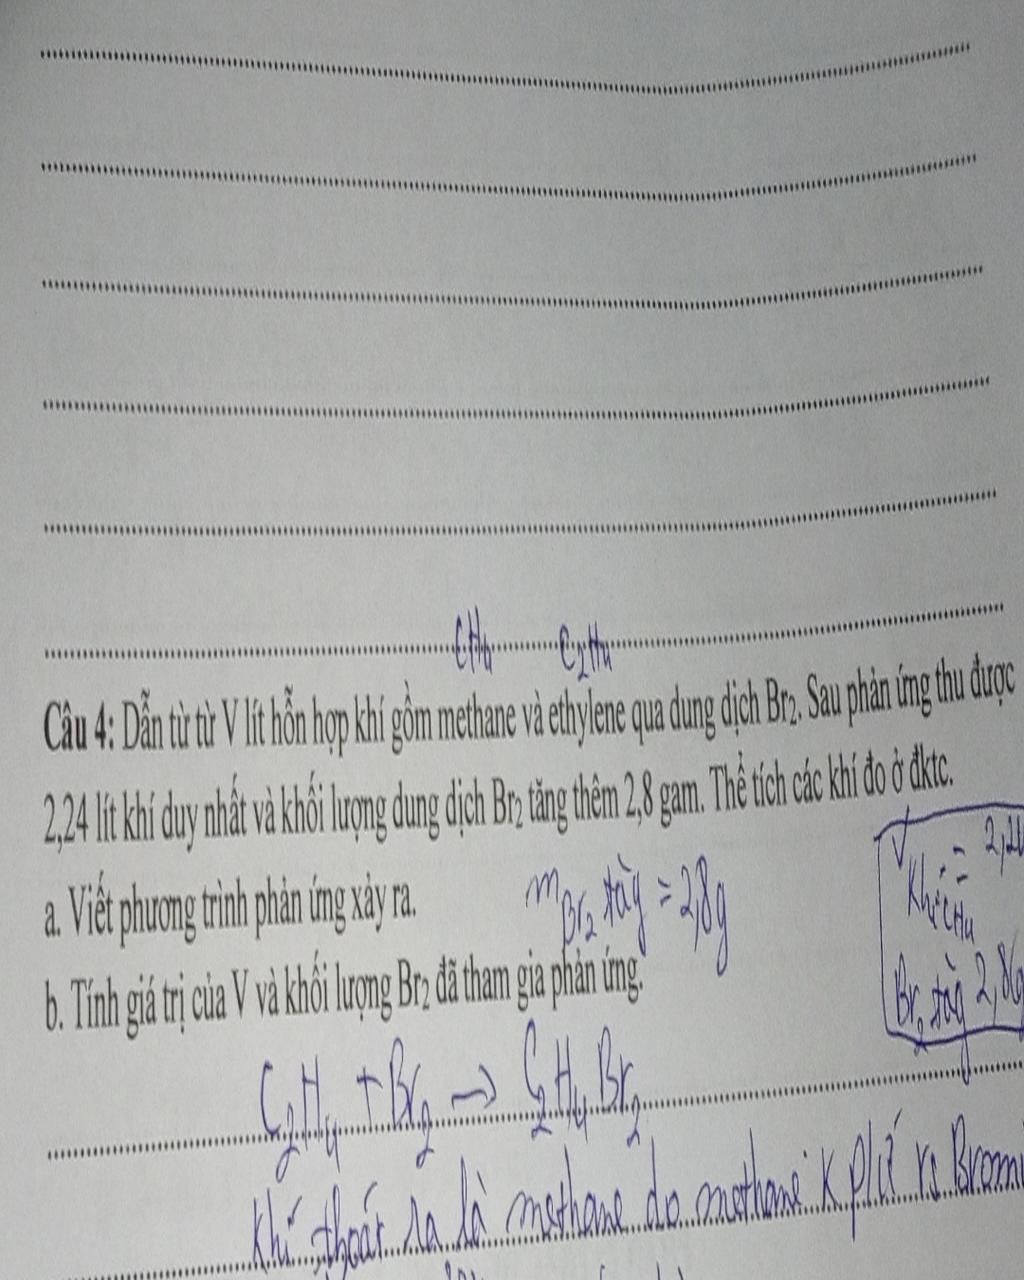 CH4 C2H4
Câu 4: Dẫn từ từ V lít hỗn hợp khí gồm methane và ethylene qua dung dịch Br2. Sau phản ứng thu được
2,24 lít khí duy nhất và khối lượng dung dịch Br2 tăng thêm 2,8 gam. Thể tích các khí đo ở đktc.
a. Viết phương trình phản ứng xảy ra.
mBr2 tăg = 2,8g
V khí CH4 = 2,24
Br2 tăg 2,8g
b. Tính giá trị của V và khối lượng Br2 đã tham gia phản ứng.
C2H4 + Br2 → C2H4Br2
Khí thoát ra là methane do methane k